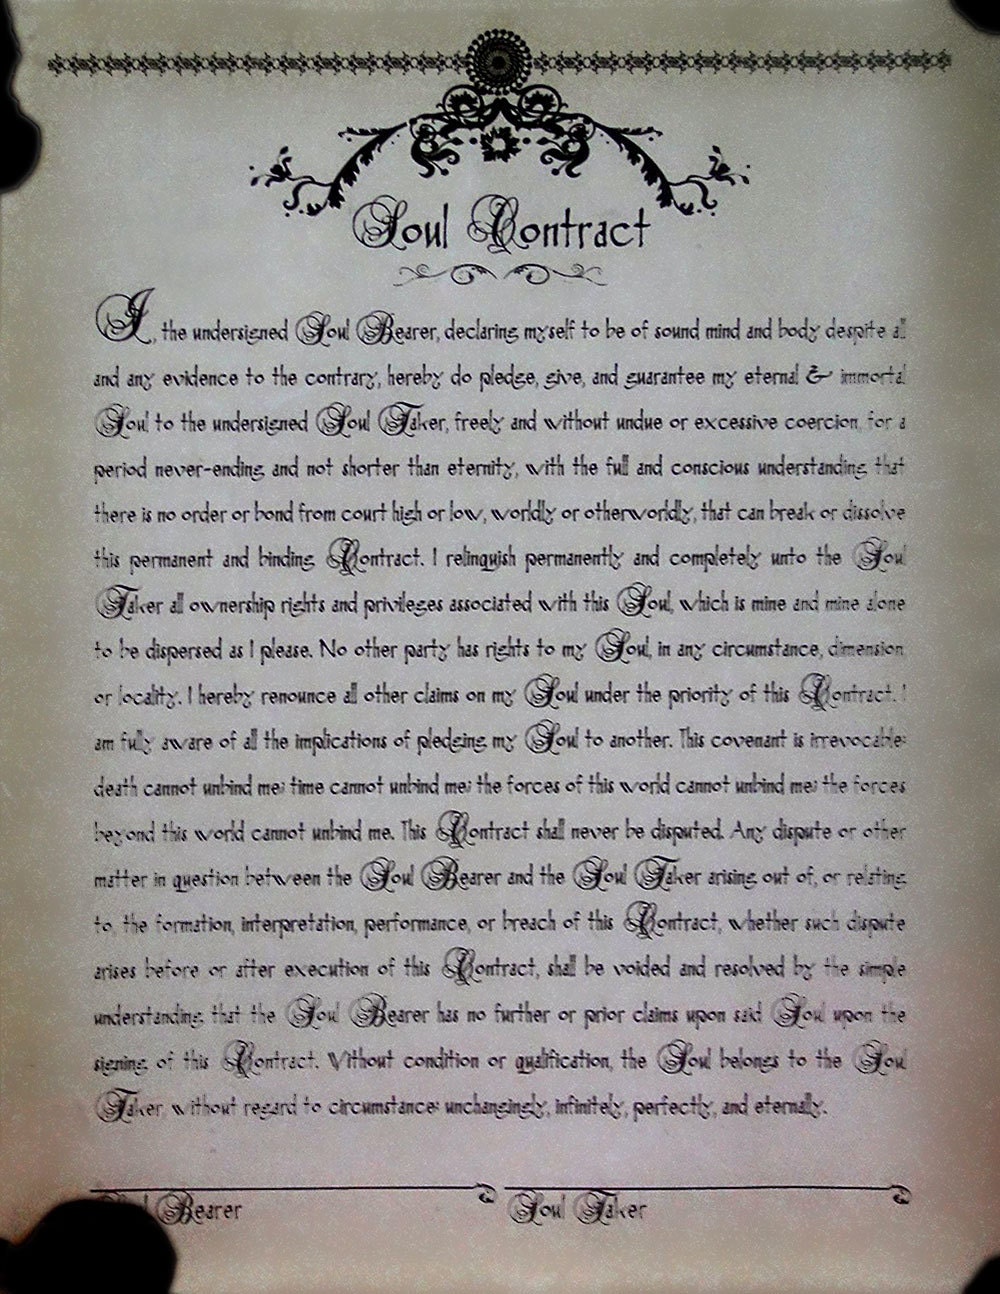 Soul Contract
I, the undersigned Soul Bearer, declaring myself to be of sound mind and body despite all
and any evidence to the contrary, hereby do pledge, give, and guarantee my eternal & immortal
Soul to the undersigned Soul Taker, freely and without undue or excessive coercion, for a
period never-ending and not shorter than eternity, with the full and conscious understanding that
there is no order or bond from court high or low, worldly or otherworldly, that can break or dissolve
this permanent and binding Contract. I relinquish permanently and completely unto the Soul
Taker all ownership rights and privileges associated with this Soul, which is mine and mine alone
to be dispersed as I please. No other party has rights to my Soul, in any circumstance, dimension
or locality. I hereby renounce all other claims on my Soul under the priority of this Contract. I
am fully aware of all the implications of pledging my Soul to another. This covenant is irrevocable:
death cannot unbind me; time cannot unbind me; the forces of this world cannot unbind me; the forces
beyond this world cannot unbind me. This Contract shall never be disputed. Any dispute or other
matter in question between the Soul Bearer and the Soul Taker arising out of, or relating
to, the formation, interpretation, performance, or breach of this Contract, whether such dispute
arises before or after execution of this Contract, shall be voided and resolved by the simple
understanding that the Soul Bearer has no further or prior claims upon said Soul upon the
signing of this Contract. Without condition or qualification, the Soul belongs to the Soul
Taker, without regard to circumstance: unchangingly, infinitely, perfectly, and eternally.
Soul Bearer
Soul Taker